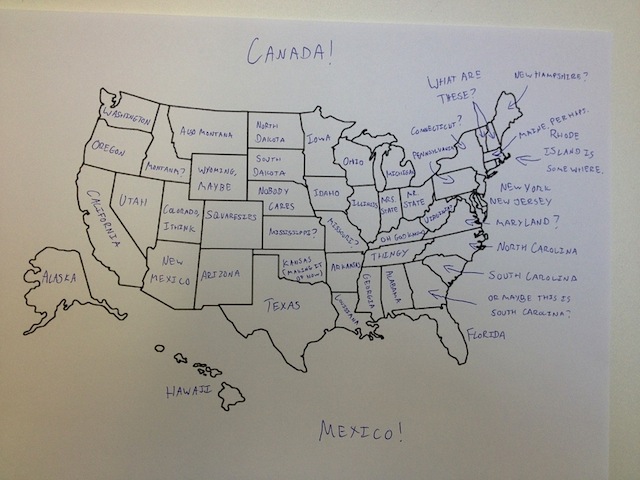 CANADA!
WHAT ARE
THESE?
NEW HAMPSHIRE?
WASHINGTON
ALSO MONTANA
NORTH
DAKOTA
IOWA
CONNECTICUT?
MAINE PERHAPS.
RHODE
ISLAND IS
SOMEWHERE.
OREGON
MONTANA?
WYOMING,
MAYBE
SOUTH
DAKOTA
OHIO
MICHIGAN
PENNSYLVANIA
UTAH
NOBODY
CARES
IDAHO
ILLINOIS
MRS.
STATE
MR.
STATE
NEW YORK
NEW JERSEY
CALIFORNIA
COLORADO,
I THINK
SQUARESIES
MISSISSIPPI?
MISSOURI?
VIRGINIA
MARYLAND?
OH GOD KNOWS
THINGY
NORTH CAROLINA
ALASKA
NEW
MEXICO
ARIZONA
KANSAS
(MAKING IT
UP NOW)
ARKANSAS
GEORGIA
ALABAMA
SOUTH CAROLINA
TEXAS
LOUISIANA
OR MAYBE THIS IS
SOUTH CAROLINA?
FLORIDA
HAWAII
MEXICO!